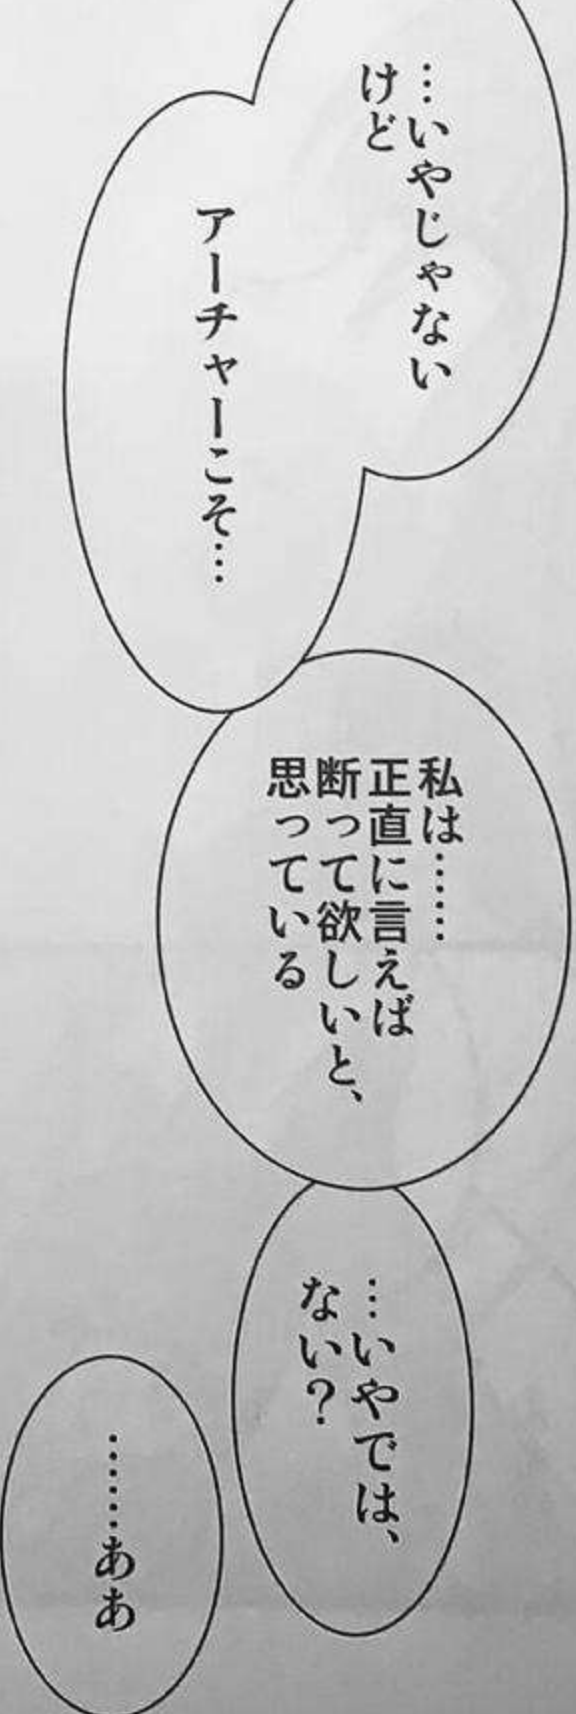 …いやじゃない
けど
アーチャーこそ…
私は……
正直に言えば
断って欲しいと、
思っている
…いやでは、
ない？
……ああ